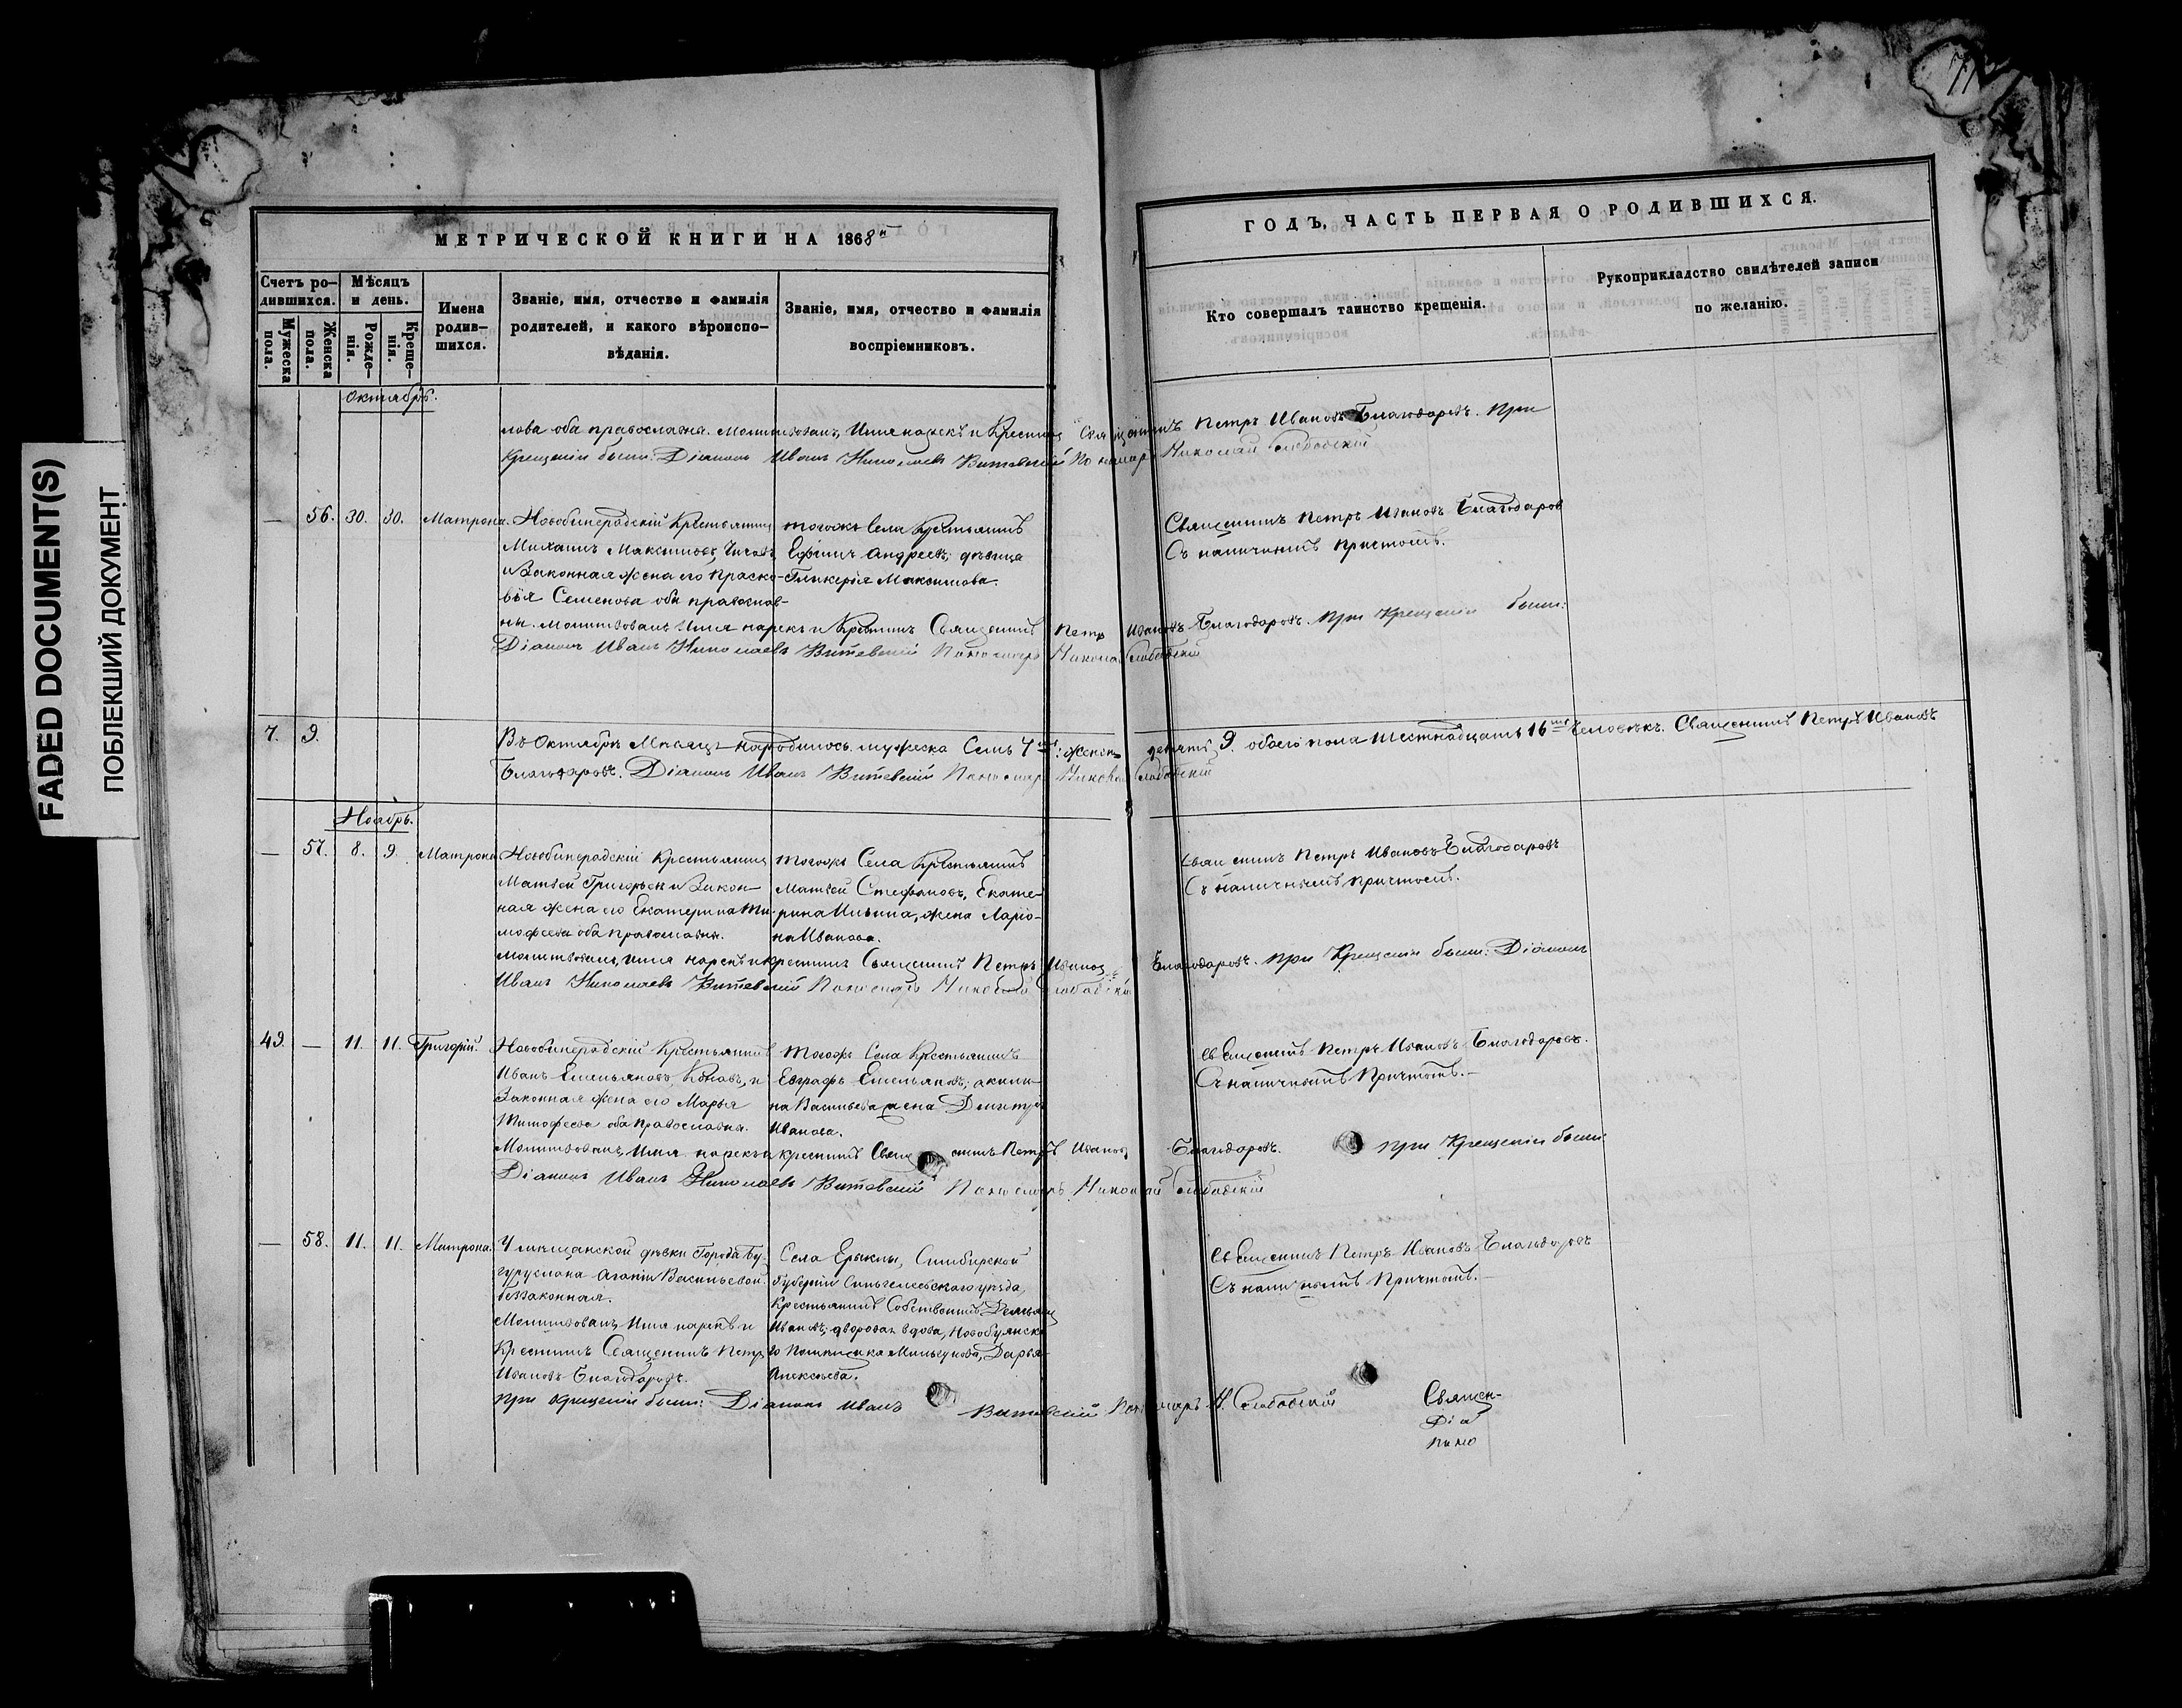 FADED DOCUMENT(S)
ПОБЛЕКШИЙ ДОКУМЕНТ
71
МЕТРИЧЕСКОЙ КНИГИ НА 1868й
ГОДЪ, ЧАСТЬ ПЕРВАЯ О РОДИВШИХСЯ.
Счетъ родившихся.
Мужеска пола.
Женска пола.
Мѣсяцъ и день.
Рожденія.
Крещенія.
Имена родившихся.
Званіе, имя, отчество и фамилія родителей, и какого вѣроисповѣданія.
Званіе, имя, отчество и фамилія воспріемниковъ.
Кто совершалъ таинство крещенія.
Рукоприкладство свидѣтелей записи по желанію.
Октябрь.
лова оба православны. Молитвовалъ, Имя нарекъ и Крестилъ Священникъ Петръ Ивановъ Благодаровъ. При
Крещеніи были: Діаконъ Иванъ Николаевъ Витевскій Пономарь Николай Слободскій
— 56. 30. 30. Матрона.
Крестьянинъ
Михаилъ Максимовъ
и Законная жена его Праско-
вья Семенова оба православ-
того же Села Крестьянинъ
Ефимъ Андреевъ; дѣвица
Гликерія Максимова.
Священникъ Петръ Ивановъ Благодаров
Съ наличнымъ причтомъ.
ны. Молитвовалъ Имя нарекъ и Крестилъ Священникъ Петр Ивановъ Благодаровъ. При Крещеніи были:
Діаконъ Иванъ Николаевъ Витевскій Пономарь Николай Слободскій
7. 9.
Въ Октябрѣ Мѣсяцѣ народилось мужеска Семь 7мь женска девять 9. обоего пола Шестнадцать 16ть Человѣкъ. Священникъ Петръ Ивановъ
Благодаровъ. Діаконъ Иванъ Витевскій Пономарь Николай Слободскій
Ноябрь.
— 57. 8. 9. Матрона
Крестьянинъ
Матвей Григорьев и Закон-
ная жена его Екатерина Ти-
мофеева оба православны.
того же Села Крестьянинъ
Матвей Стефановъ, Екате-
рина Ильина, жена Ларіо-
на Иванова.
Священникъ Петръ Ивановъ Благодаровъ
Съ наличнымъ причтомъ.
Молитвовалъ, имя нарекъ и крестилъ Священникъ Петръ Ивановъ Благодаровъ. при Крещеніи были: Діаконъ
Иванъ Николаевъ Витевскій Пономарь Николай Слободскій
49. — 11. 11. Григорій.
Крестьянинъ
Иванъ Емельяновъ и
Законная жена его Марья
Тимофеева оба Православны.
того жъ Села Крестьянинъ
Евграфъ Емельяновъ; Акили-
на Васильева жена Дмитрія
Иванова.
Священникъ Петръ Ивановъ Благодаровъ.
Съ наличнымъ Причтомъ.
Молитвовалъ, Имя нарекъ и крестилъ Священникъ Петръ Ивановъ Благодаровъ. при Крещеніи были:
Діаконъ Иванъ Николаевъ Витевскій Пономарь Николай Слободскій
— 58. 11. 11. Матрона.
У мѣщанской дѣвки Города Бу-
гуруслана Агапіи Васильевой
беззаконная.
Молитвовалъ, Имя нарекъ и
Крестилъ Священникъ Петр
Ивановъ Благодаровъ.
Села Ерыклы, Симбирской
Губерніи Сингилеевскаго уѣзда,
Крестьянинъ Собственникъ Демьянъ
Ивановъ; дворовая вдова,
Дарья
Алексѣева.
Священникъ Петръ Ивановъ Благодаровъ
Съ наличнымъ Причтомъ.
при крещеніи были: Діаконъ Иванъ Витевскій Пономарь Н. Слободскій
Священ-
Діа
поно